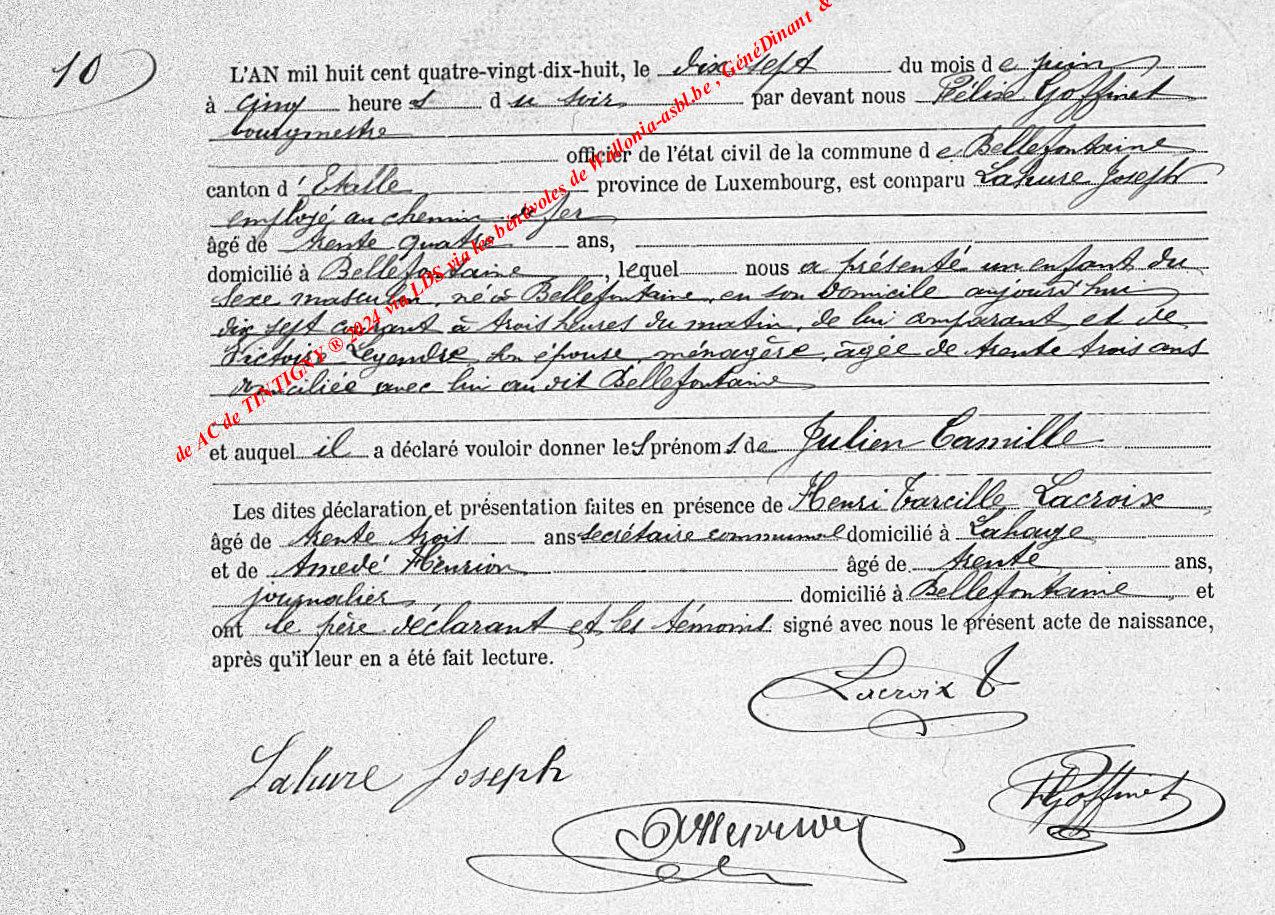 10
L'AN mil huit cent quatre-vingt-dix-huit, le dix sept du mois de juin
à cinq heures du soir par devant nous Félix Goffinet
bourgmestre
officier de l'état civil de la commune de Bellefontaine
canton d'Etalle province de Luxembourg, est comparu Lahure Joseph
employé au chemin de fer
âgé de trente quatre ans,
domicilié à Bellefontaine, lequel nous a présenté un enfant du
sexe masculin, né à Bellefontaine, en son domicile aujourd'hui
dix sept courant à trois heures du matin, de lui comparant et de
Victoire Legendre son épouse, ménagère, âgée de trente trois ans
domiciliée avec lui au dit Bellefontaine
et auquel il a déclaré vouloir donner les prénoms de Julien Camille
Les dites déclaration et présentation faites en présence de Henri Tarcille Lacroix
âgé de trente trois ans secrétaire communal domicilié à Lahage
et de Amedé Henrion âgé de trente ans,
journalier domicilié à Bellefontaine et
ont le père déclarant et les témoins signé avec nous le présent acte de naissance,
après qu'il leur en a été fait lecture.
Lacroix T
Lahure Joseph
F Goffinet
de AC de TINTIGNY ® 2024 via LDS via les bénévoles de Wallonia-asbl.be , GénéDinant &